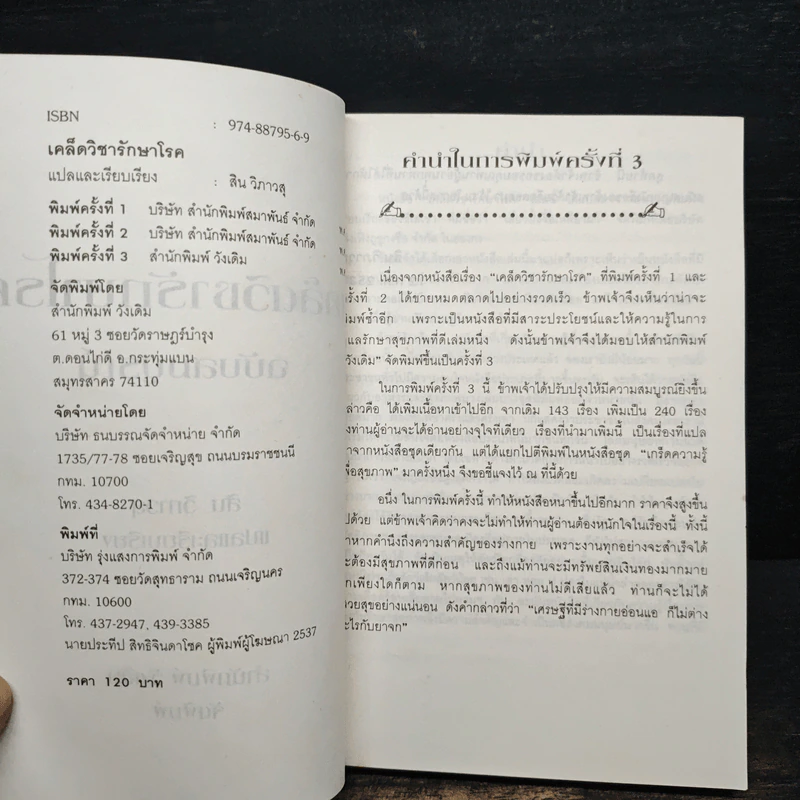 ISBN : 974-88795-6-9
เคล็ดวิชารักษาโรค
แปลและเรียบเรียง : สิน วิภาวสุ
พิมพ์ครั้งที่ 1 บริษัท สำนักพิมพ์สมาพันธ์ จำกัด
พิมพ์ครั้งที่ 2 บริษัท สำนักพิมพ์สมาพันธ์ จำกัด
พิมพ์ครั้งที่ 3 สำนักพิมพ์ วังเดิม
จัดพิมพ์โดย
สำนักพิมพ์ วังเดิม
61 หมู่ 3 ซอยวัดราษฎร์บำรุง
ต.ดอนไก่ดี อ.กระทุ่มแบน
สมุทรสาคร 74110
จัดจำหน่ายโดย
บริษัท ธนบรรณจัดจำหน่าย จำกัด
1735/77-78 ซอยเจริญสุข ถนนบรมราชชนนี
กทม. 10700
โทร. 434-8270-1
พิมพ์ที่
บริษัท รุ่งแสงการพิมพ์ จำกัด
372-374 ซอยวัดสุทธาราม ถนนเจริญนคร
กทม. 10600
โทร. 437-2947, 439-3385
นายประทีป สิทธิจินดาโชค ผู้พิมพ์ผู้โฆษณา 2537
ราคา 120 บาท
คำนำในการพิมพ์ครั้งที่ 3
เนื่องจากหนังสือเรื่อง "เคล็ดวิชารักษาโรค" ที่พิมพ์ครั้งที่ 1 และ
ครั้งที่ 2 ได้ขายหมดตลาดไปอย่างรวดเร็ว ข้าพเจ้าจึงเห็นว่าน่าจะ
พิมพ์ซ้ำอีก เพราะเป็นหนังสือที่มีสาระประโยชน์และให้ความรู้ในการ
แลรักษาสุขภาพที่ดีเล่มหนึ่ง ดังนั้นข้าพเจ้าจึงได้มอบให้สำนักพิมพ์
วังเดิม" จัดพิมพ์ขึ้นเป็นครั้งที่ 3
ในการพิมพ์ครั้งที่ 3 นี้ ข้าพเจ้าได้ปรับปรุงให้มีความสมบูรณ์ยิ่งขึ้น
ล่าวคือ ได้เพิ่มเนื้อหาเข้าไปอีก จากเดิม 143 เรื่อง เพิ่มเป็น 240 เรื่อง
งท่านผู้อ่านจะได้อ่านอย่างจุใจทีเดียว เรื่องที่นำมาเพิ่มนี้ เป็นเรื่องที่แปล
าจากหนังสือชุดเดียวกัน แต่ได้แยกไปตีพิมพ์ในหนังสือชุด "เกร็ดความรู้
พื่อสุขภาพ" มาครั้งหนึ่ง จึงขอชี้แจงไว้ ณ ที่นี้ด้วย
อนึ่ง ในการพิมพ์ครั้งนี้ ทำให้หนังสือหนาขึ้นไปอีกมาก ราคาจึงสูงขึ้น
ปด้วย แต่ข้าพเจ้าคิดว่าคงจะไม่ทำให้ท่านผู้อ่านต้องหนักใจในเรื่องนี้ ทั้งนี้
าหากคำนึงถึงความสำคัญของร่างกาย เพราะงานทุกอย่างจะสำเร็จได้
ะต้องมีสุขภาพที่ดีก่อน และถึงแม้ท่านจะมีทรัพย์สินเงินทองมากมาย
กเพียงใดก็ตาม หากสุขภาพของท่านไม่ดีเสียแล้ว ท่านก็จะไม่ได้
วยสุขอย่างแน่นอน ดังคำกล่าวที่ว่า "เศรษฐีที่มีร่างกายอ่อนแอ ก็ไม่ต่าง
ะไรกับยาจก"